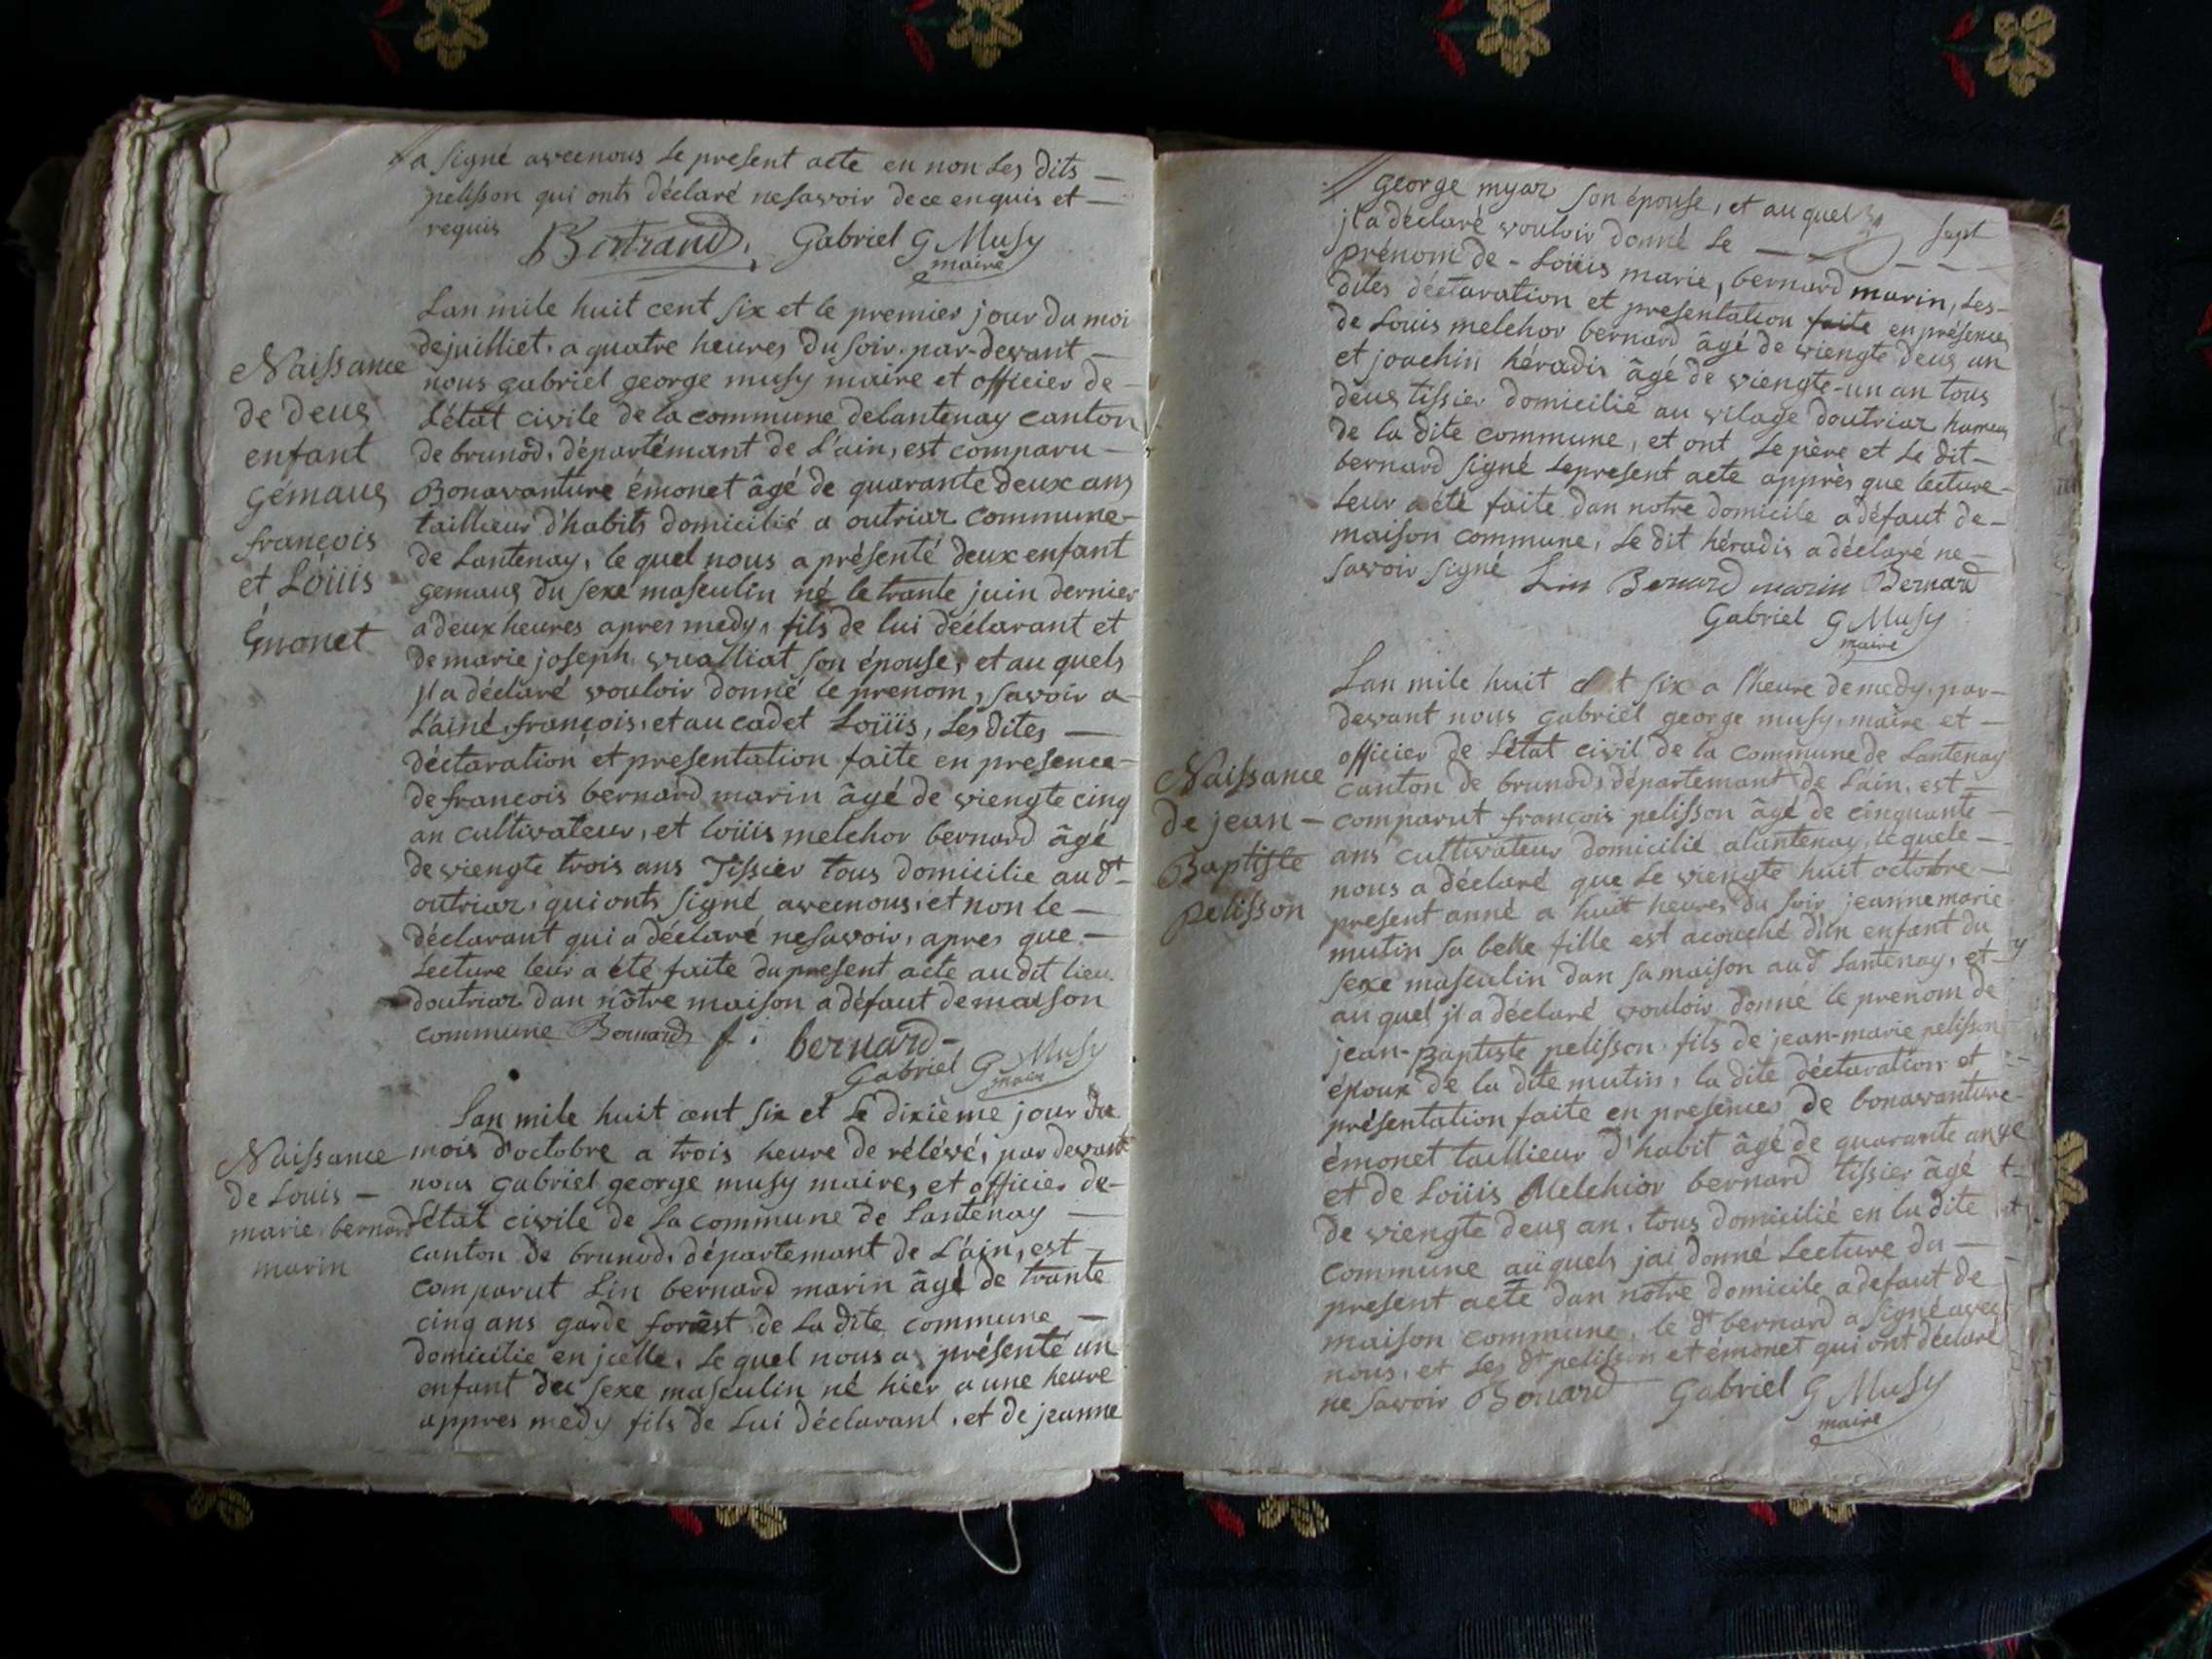 a signé avecnous le present acte en non les dits —
pelisson qui onts déclaré nesavoir dece enquis et —
requis Bertrand. Gabriel G Musy
maire
Lan mile huit cent six et le premier jour du moi
Naissance
de deus
enfant
gémaus
françois
et Loüis
Émonet
dejuilliet. a quatre heures du soir. par-devant —
nous gabriel george musy maire et officier de -
L'état civile de la commune delantenay canton
de brunod. départémant de L'ain, est comparu —
Bonavanture émonet âgé de quarante deux ans
taillieur d'habits domicilié a outriaz commune-
de Lantenay, le quel nous a présenté deux enfant
gemaus du sexe masculin né le trante juin dernier
a deux heures apres medy, fils de lui déclarant et
de marie joseph vualliat son épouse, et au quels
jl a déclaré vouloir donné le prenom, savoir a-
L'ainé, françois, et au cadet Loüis, Les dites —
déclaration et presentation faite en presence-
de françois bernard marin âgé de viengte cinq
an cultivateur, et loüis melchor bernard âgé
de viengte trois ans Tissier tous domicilie au dt-
outriaz, qui onts signé avecnous, et non le —
déclarant qui a déclaré nesavoir, apres que —
Lecture leur a été faite du present acte au dit lieu
doutriaz dan nôtre maison a défaut demaison
commune Bernard f. bernard-
Gabriel G Musy
maire
Lan mile huit cent six et Le dixième jour du
Naissance
de Louis —
marie bernard
marin
mois d'octobre a trois heure de rélévé, par devant
nous gabriel george musy maire, et officier de-
L'état civile de La commune de Lantenay —
canton de brunod. départemant de L'ain, est —
comparut Lin bernard marin âgé de trante
cinq ans garde forest de La dite commune —
domicilie en jcelle. Le quel nous a présenté un
enfant du sexe masculin né hier a une heure
appres medy fils de Lui déclarant, et de jeanne
george myaz son épouse, et au quel
sept
jl a déclaré vouloir donné Le —
prénom de - Loüis marie, bernard marin, Les-
dites déclaration et presentation faite en présence
de Louis melchor bernard âgé de viengte deus an
et joachin héradis âgé de viengte-un an tous
deus tissier domicilié au vilage doutriaz hameu
de la dite commune, et ont Le père et Le dit-
bernard signé Lepresent acte apprès que lecture-
Leur a été faite dan notre domicile a défaut de-
maison commune, Le dit héradis a déclaré ne-
savoir signé Lin Bernard marin Bernard
Gabriel G Musy
maire
Lan mile huit six a l'heure de medy. par-
devant nous gabriel george musy. maire et —
officier de L'état civil de la commune de Lantenay
Naissance
de jean —
Baptiste
pelisson
canton de brunod, départemant de L'ain. est —
comparut françois pelisson âgé de cinquante —
ans cultivateur domicilié alantenay, le quele —
nous a déclaré que Le viengte huit octobre —
present anné a huit heures du soir jeanne marie
mutin sa belle fille est acouché d'un enfant du
sexe masculin dan sa maison au dt Lantenay, et-
au quel jl a déclaré vouloir donné le prenom de
jean-Baptiste pelisson fils de jean-marie pelisson
époux de la dite mutin, la dite déclaration et
présentation faite en presence de bonavanture-
émonet taillieur d'habit âgé de quarante an
et de Loüis Melchior bernard tissier âgé
de viengte deus an. tous domicilié en la dite
commune aüquels jai donné Lecture du —
present acte dan notre domicile a defaut de
maison commune, le dt bernard a signé avec
nous, et Les dt pelisson et émonet qui ont déclaré
ne savoir Bernard Gabriel G Musy
maire